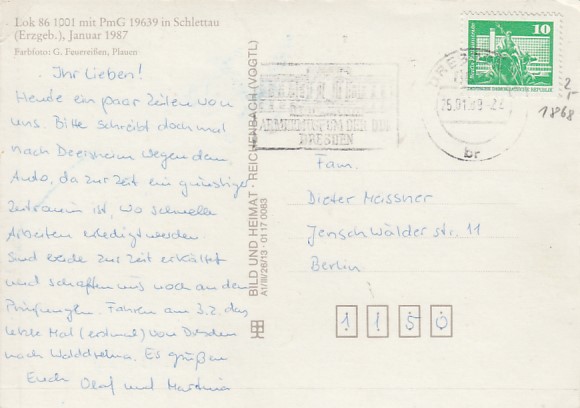 Lok 86 1001 mit PmG 19639 in Schlettau
(Erzgeb.), Januar 1987
Farbfoto: G. Feuereißen, Plauen
Ihr Lieben!
Heute ein paar Zeilen von
uns. Bitte schreibt doch mal
nach wegen dem
Auto, da zur Zeit ein günstiger
Zeitraum ist, wo schneller
Arbeiten erledigt werden.
Sind beide zur Zeit erkältet
und schaffen uns noch an den
Prüfungen. Fahren am 3.2. das
letzte Mal (erstmal) von Dresden
nach Es grüßen
Euch Olaf und Martina
BILD UND HEIMAT · REICHENBACH (VOGTL)
A1/III/26/13 · 01 17 0083
ARMEEMUSEUM DER DDR
DRESDEN
10
DEUTSCHE DEMOKRATISCHE REPUBLIK
br
1868
Fam.
Dieter Meissner
Jenschwälder str. 11
Berlin
1150